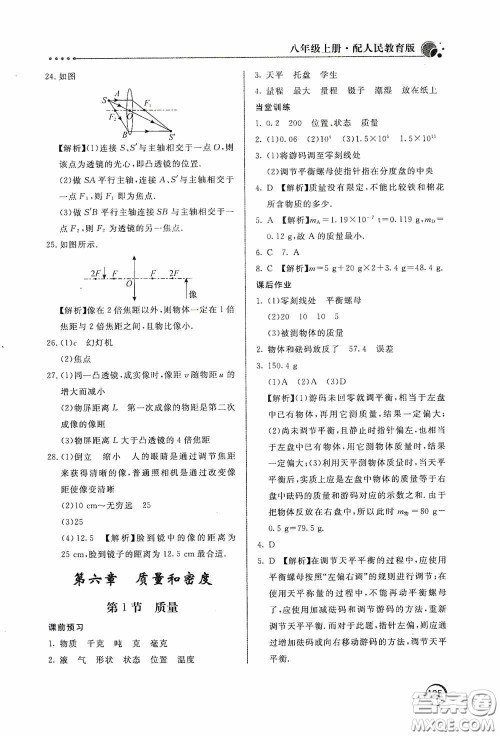 八年级上册·配人民教育版
24. 如图
S A F₁ O F₂ B S′
【解析】(1)连接 S、S′与主轴相交于一点 O,则
该点为透镜的光心,即凸透镜的位置.
(2)做 SA 平行主轴,连接 AS′与主轴相交于
一点 F₁,则 F₁ 即为焦点.
(3)做 S′B 平行于主轴,连接 SB 与主轴相交于
一点 F₂,则 F₂ 为另一焦点.
25. 如图所示.
2F F F 2F
像
【解析】像在 2 倍焦距以外,则物体一定在 1 倍
焦距与二倍焦距之间,且光心要一致.
26. (1)c 幻灯机
(2)焦点
27. (1)同一凸透镜,成实像时,像距 v 随物距 u 的
增大而减小
(2)物屏距离 L 第一次成像的物距是第二次
成像的像距
(3)物屏距离 L 大于凸透镜的 4 倍焦距
28. (1)倒立 缩小 人的眼睛是通过调节焦距
来获得清晰的像,普通照相机是通过改变像
距使像变清晰
(2)10 cm~无穷远 25
(3)25
(4)12.5 【解析】脸到镜中的像的距离为
25 cm,脸到镜子的距离为 12.5 cm 最合适.
第六章 质量和密度
第1节 质量
课前预习
1. 物质 千克 吨 克 毫克
2. 液 气 形状 状态 位置 温度
3. 天平 托盘 学生
4. 量程 最大 量程 镊子 潮湿 放在纸上
当堂训练
1. 0.2 200 位置、状态 质量
2. (1)0.06 (2)10⁵ (3)1.5×10⁵
3. (1)将游码调至零刻线处
(2)调节平衡螺母使指针指在分度盘的中央
4. D 【解析】质量没有限定,不能比较铁和棉花
所含物质的多少.
5. A 【解析】
0.12 g,故 A 质量最小.
6. C 7. A
8. C 【解析】m=5 g+20 g×2+3.4 g=48.4 g.
课后作业
1. (1)零刻线处 平衡螺母
(2)20 10 5
(3)被测物体的质量
2. 物体和砝码放反了 57.4 误差
3. 150.4 g
(1)A (2)A (3)D
【解析】(1)游码未回零就调平衡,相当于左盘
中已有物体,再用它测量,结果一定偏大;
(2)尚未调节平衡,且静止时指针偏左,也相当
于左盘中已有物体,再用它测质量时,结果一
定偏大;(3)利用天平测物体质量时,当天平
平衡后,实质是左盘中物体的质量等于右盘
中砝码的质量和游码对应的示数之和. 由于
物体放在右盘中,所以此时 m物=80 g-
0.5 g=79.5 g.
4. D
5. D 【解析】在调节天平平衡的过程中,应使用
平衡螺母按照“左偏右调”的规则进行调节;在
用天平称量的过程中,不能移动平衡螺母,重新
调节天平平衡,应使用加减砝码和调节游码的
方法,而不能使用调节平衡螺母的方法,指针偏
左,应使用增加砝码或向右调节游码的方法,故
选 D.